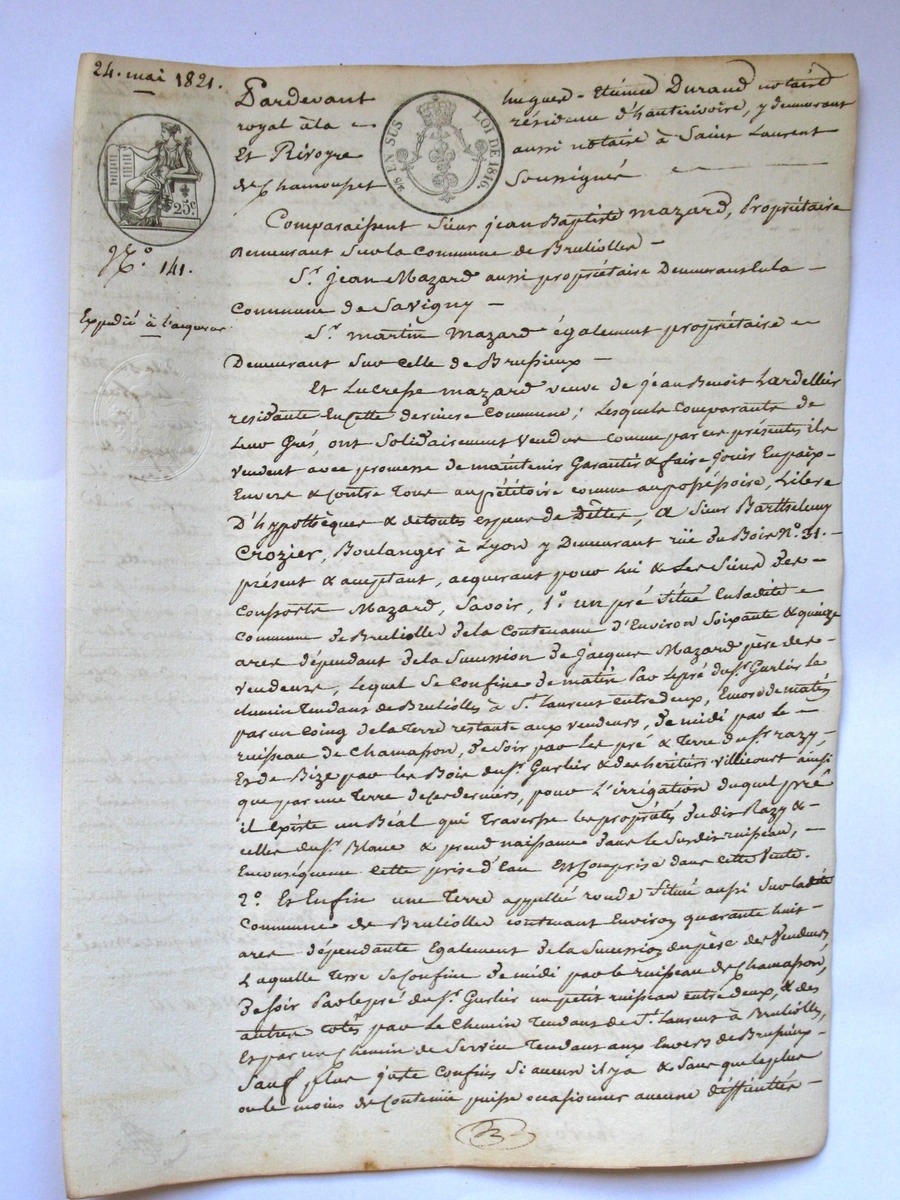 24. mai 1821.
25 EN SUS
LOI DE 1816.
25c.
N.o 141.
Expédié à l'acquereur
Pardevant hugues - Etienne Durand notaire
royal à la résidence d'hauterivoire, y demeurant
Et Rivoyre aussi notaire à Saint Laurent
de Chamousset Soussignés
Comparaissent Sieur jean Baptiste Mazard, Propriétaire
Demeurant Sur la Commune de Brullioles
S.r jean Mazard aussi propriétaire Demeurant En la
Commune de Savigny
S.r martin Mazard également propriétaire
Demeurant Sur celle de Brussieux
Et Lucresse mazard veuve de jean Benoit Lardellier
residante En cette derniere Commune; Lesquels Comparants de
Leur Grés, ont Solidairement Vendus comme par ces présentes ils
vendent avec promesse de maintenir Garantir & faire jouir En paix
Envers & contre Tous au pétitoire comme au possessoire, Libere
D'hypothèques & de toutes espece de Dettes, a Sieur Barthelemy
Crozier, Boulanger à Lyon y Demeurant rüe du Bois N.o 31.
présent & aceptant, acquirant pour lui & les Siens des
Consorts Mazard, Savoir, 1.o un pré Situé En ladite
Commune de Brullioles de la Contenance d'Environ Soixante & quinze
ares dépendant de la Sucession de Jacques Mazard père des
Vendeurs, Lequel Se Confine de matin Par le pré du S.r Gurlir Le
chemin Tendant de Brullioles à S.t Laurent entre deux, Encore de matin
par un Coing de la Terre restante aux vendeurs, de midi par le
ruisseau de Chamasson, de Soir par Les pré & Terre du S.r razy
Et de Bize par les Bois du S.r Gurlir & des heritiers Villicourt ainsi
que par une Terre de ces derniers, pour L'irrigation duquel pré
il Existe un Béal qui Traverse les propriétés du dit Razy &
celles du S.r Blanc & prend naissance dans le Susdit ruisseau,
En conséquence Cette prise d'Eau Est Comprise dans cette Vente.
2.o Et Enfin une Terre appellée ronde Situé aussi Sur ladite
Commune de Brullioles contenant Environ quarante huit
ares dépendante Egalement de la Sucession du père des Vendeurs
Laquelle Terre Se Confine de midi par le ruisseau de Chamasson,
de Soir Par le pré du S.r Gurlir un petit ruisseau entre deux, & des
autres cotés par Le Chemin Tendant de S.t Laurent à Brullioles,
Et par un Chemin de Service Tendant aux Envers de Brussieux
Sauf plus juste Confins Si aucun il y a & Sans que le plus
ou le moins de Contenue puisse occasionner aucune difficultés